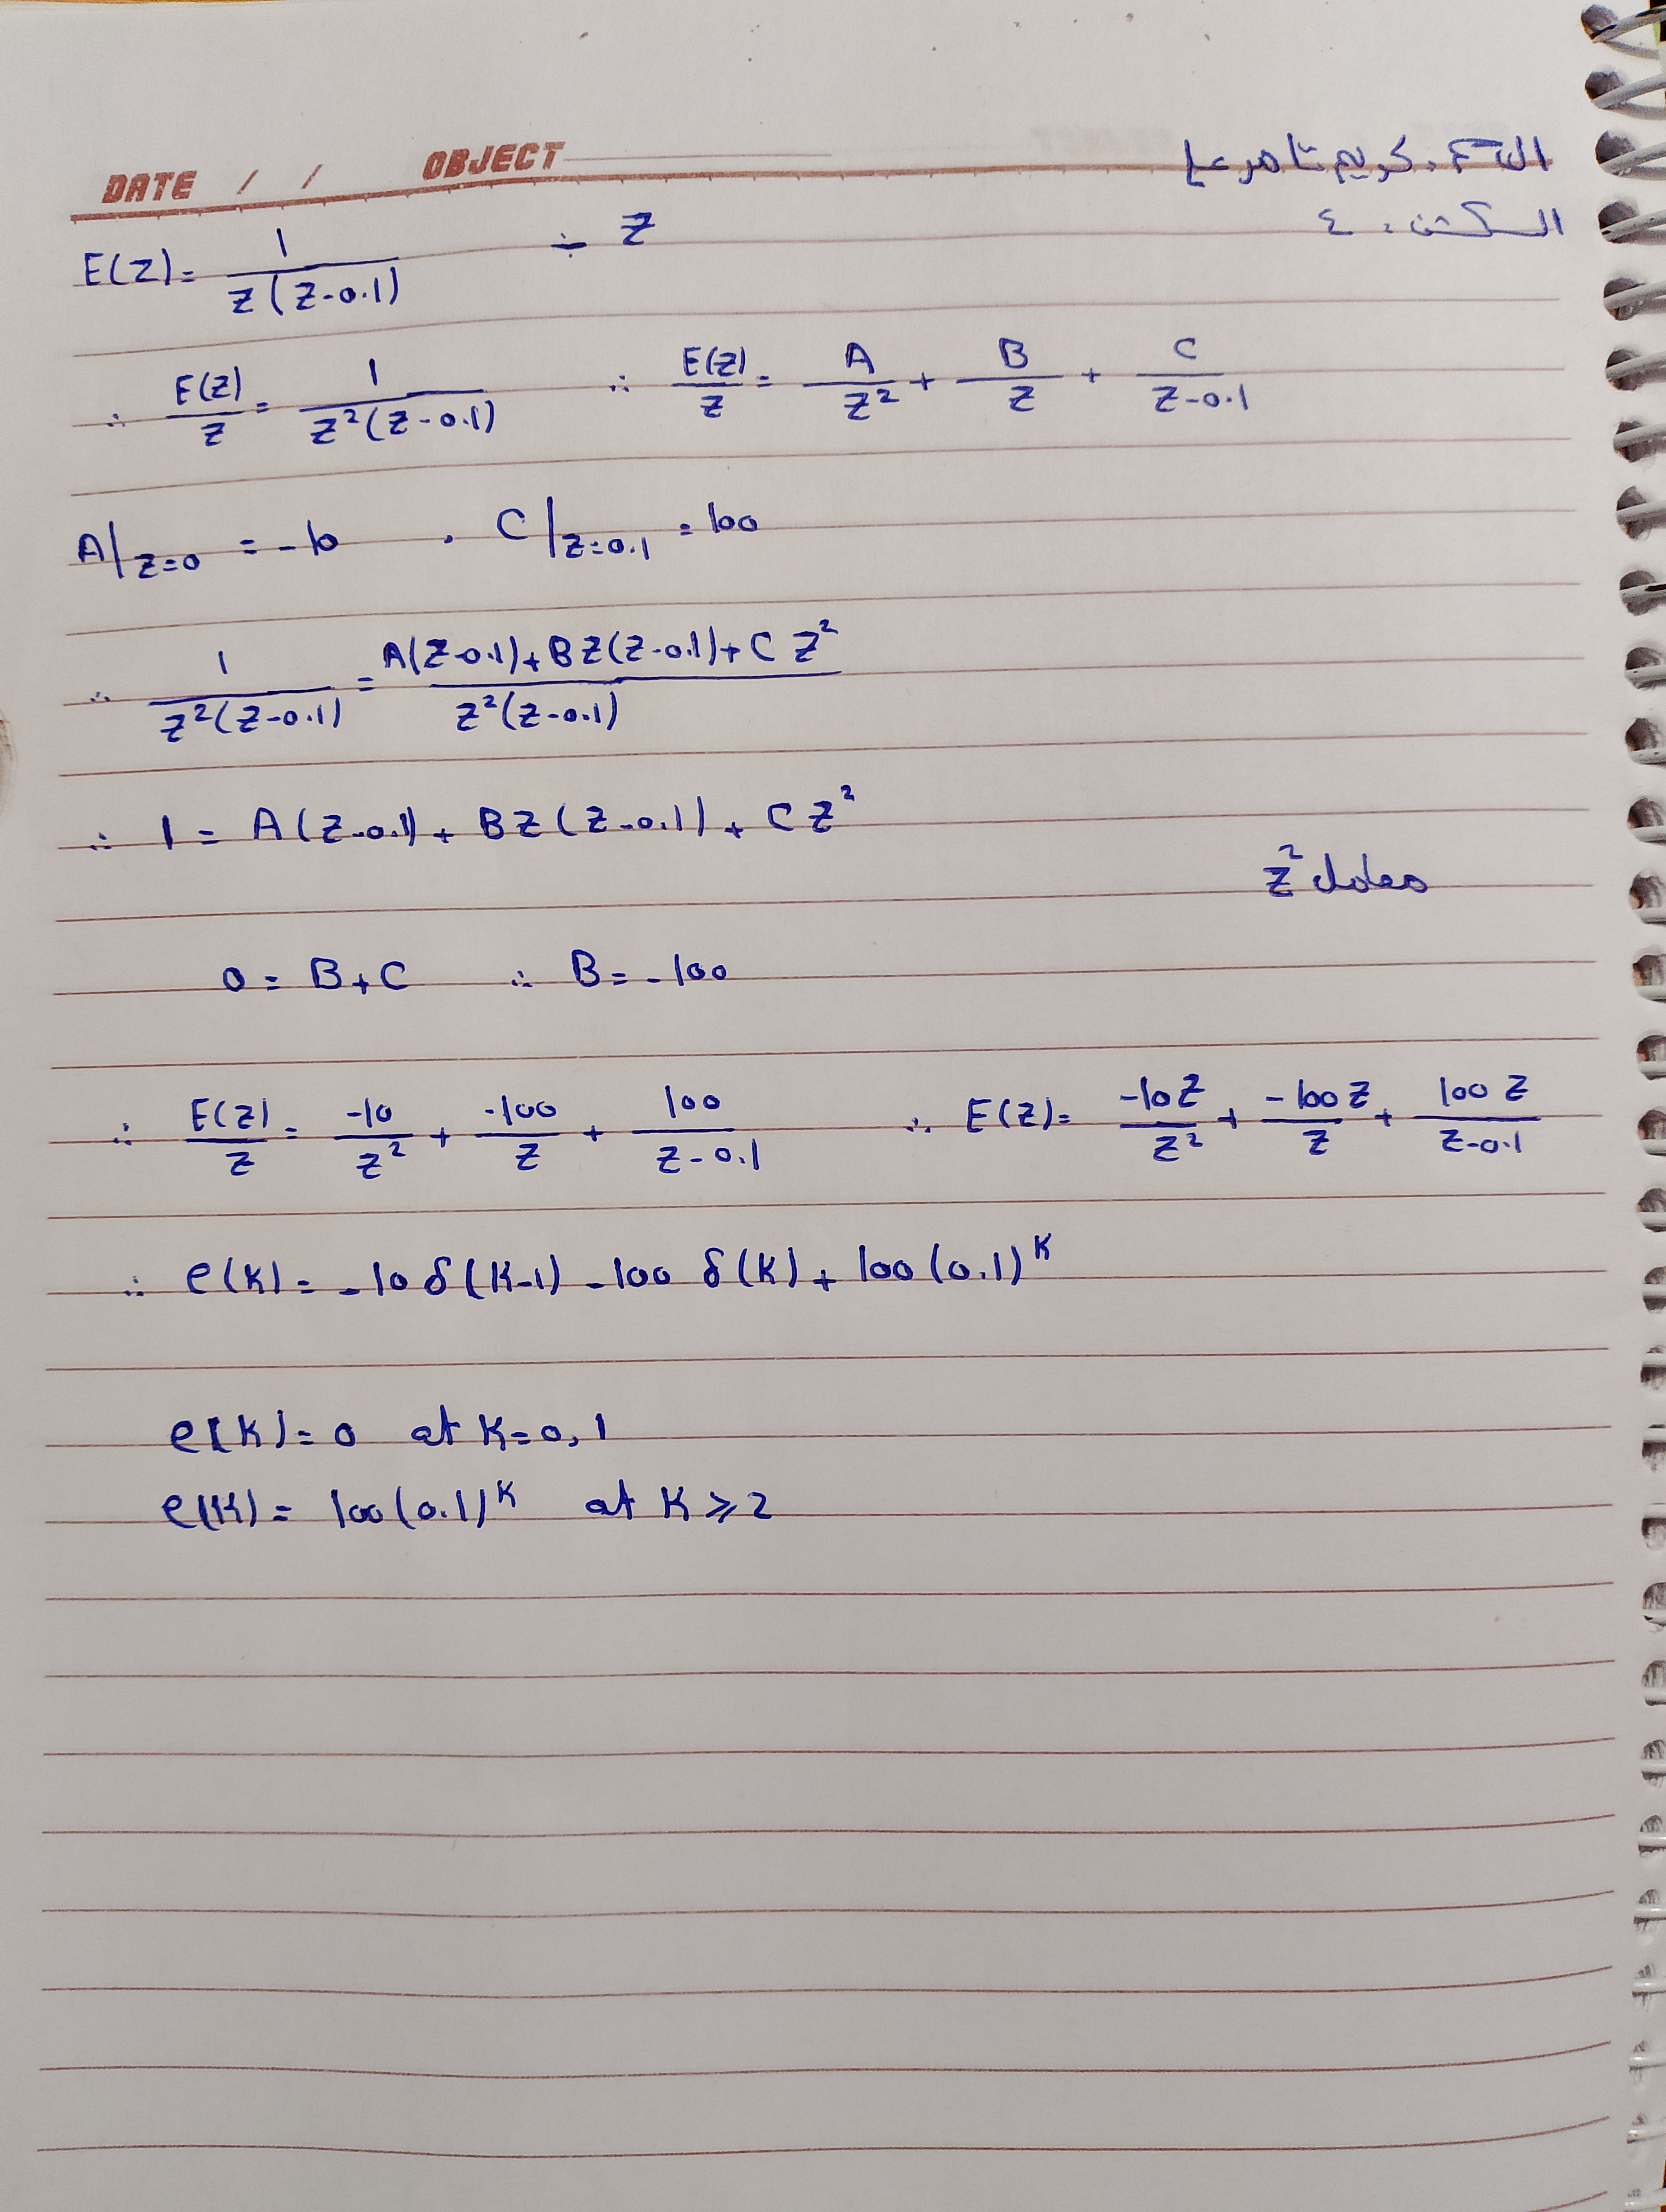 DATE / / OBJECT
الاسم: كريم تامر علي
السكشن: ٤
E(Z) = 1 / Z(Z-0.1) ÷ Z
∴ E(Z)/Z = 1 / Z²(Z-0.1) ∴ E(Z)/Z = A/Z² + B/Z + C/Z-0.1
A|Z=0 = -10 , C|Z=0.1 = 100
∴ 1 / Z²(Z-0.1) = A(Z-0.1)+BZ(Z-0.1)+CZ² / Z²(Z-0.1)
∴ 1 = A(Z-0.1) + BZ(Z-0.1) + CZ²
معامل Z²
0 = B+C ∴ B = -100
∴ E(Z)/Z = -10/Z² + -100/Z + 100/Z-0.1 ∴ E(Z) = -10Z/Z² + -100Z/Z + 100Z/Z-0.1
∴ e(K) = -10 δ(K-1) -100 δ(K) + 100(0.1)ᴷ
e(K) = 0 at K=0,1
e(K) = 100(0.1)ᴷ at K⩾2